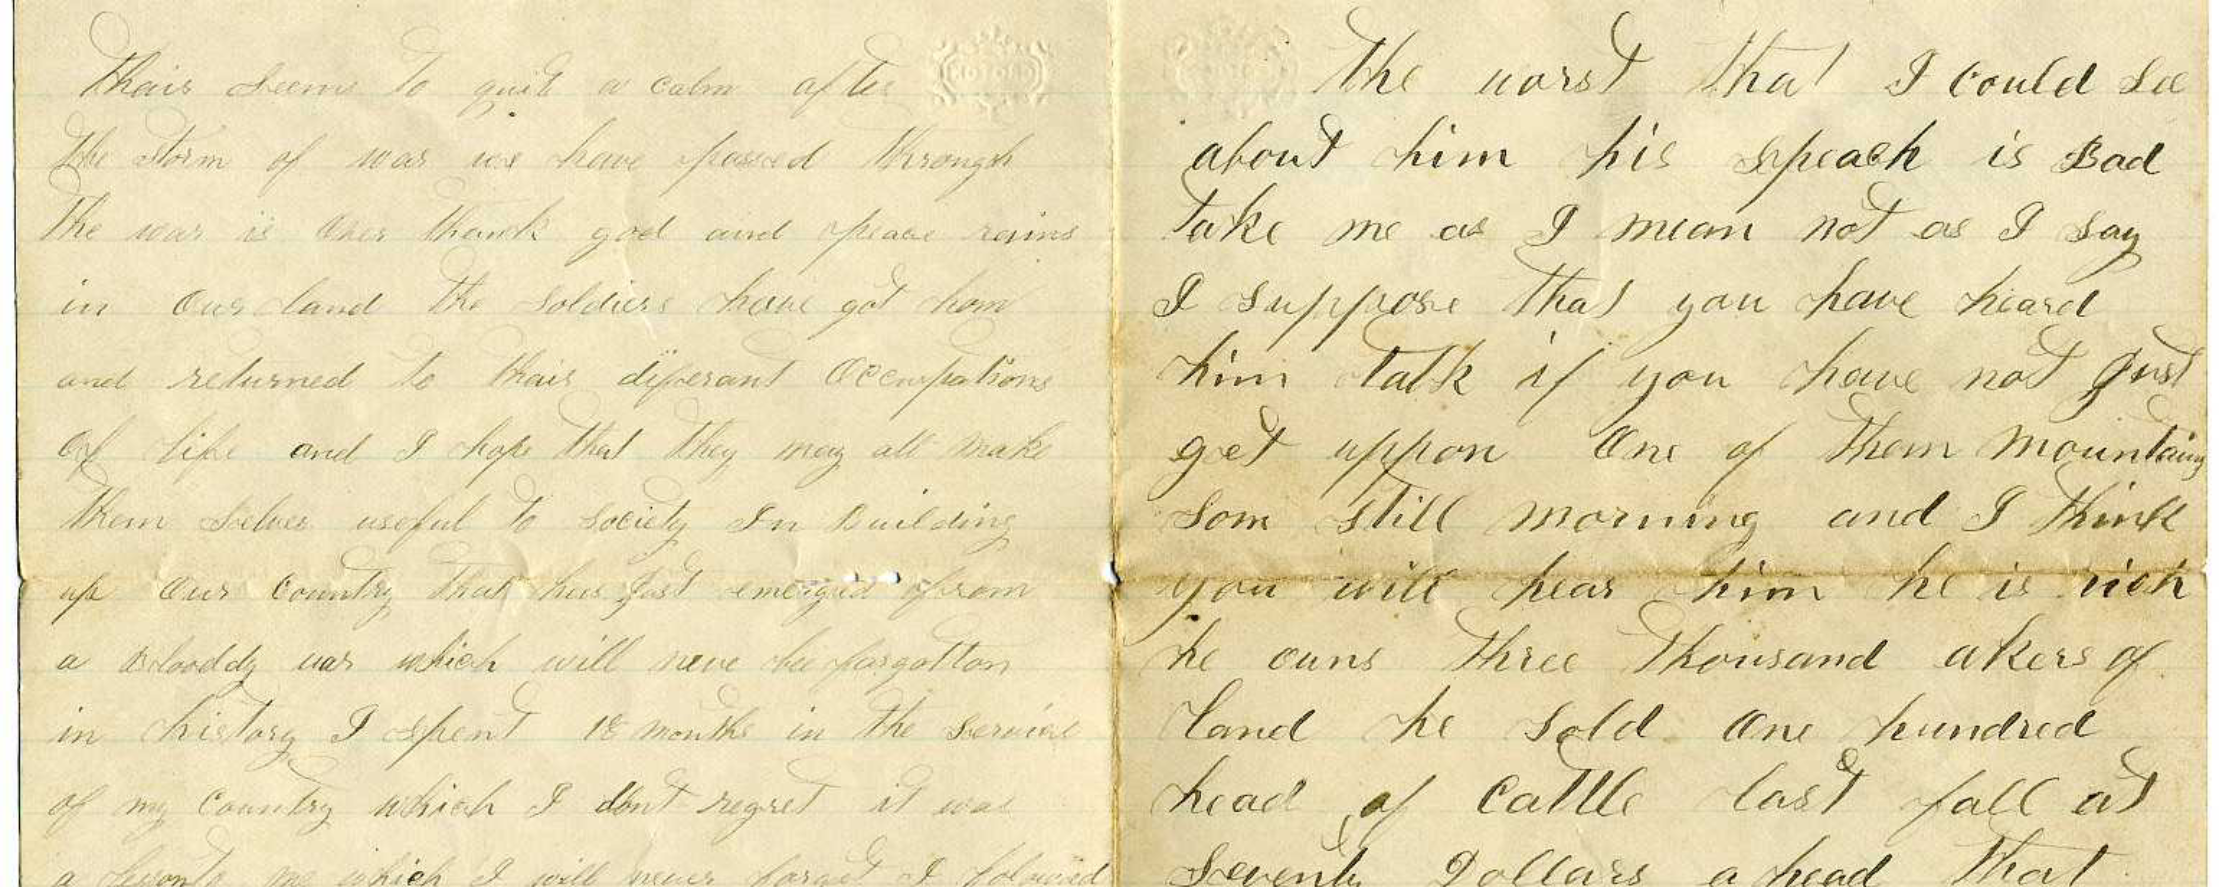 thair seems to quit a calm after
the storm of war we have passed through
the war is over thank god and peace rains
in our land the soldiers have got hom
and returned to thair diferant occupations
of life and I hope that they may all make
them selves useful to society In Building
up our country that has just emerged from
a Blooddy war which will neve be forgotton
in history I spent 18 months in the service
of my country which I dont regret it was
a me which I will never forget I folowed
the worst that I could see
about him his speach is Bad
take me as I mean not as I say
I suppose that you have heard
him talk if you have not Just
get uppon one of them mountains
som still morning and I think
you will hear him he is rich
he owns three thousand akers of
land he sold one hundred
head of cattle last fall at
seventy Dollars a head that